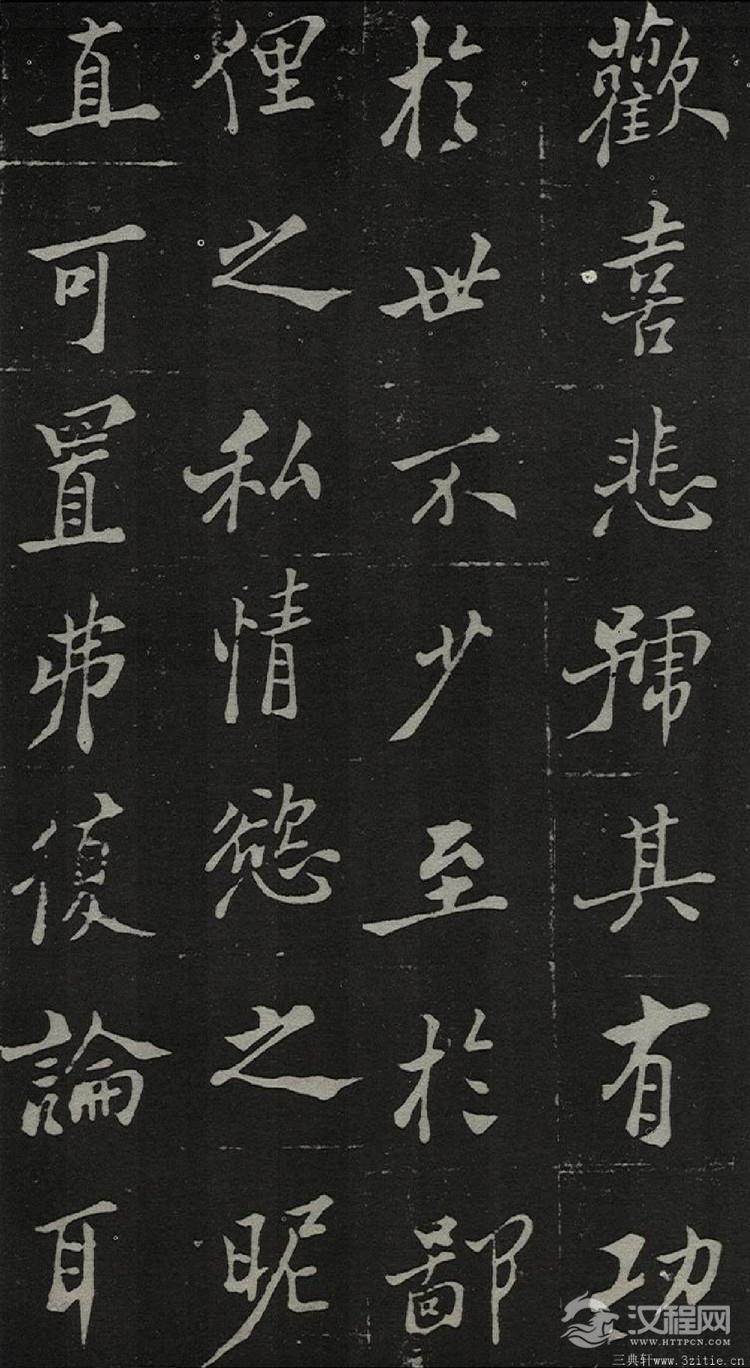 歡喜悲號其有功
於世不少至於鄙
俚之私情慾之昵
直可置弗復論耳
汉程网
WWW.HTTPCN.COM
三典轩www.3zitie.cn